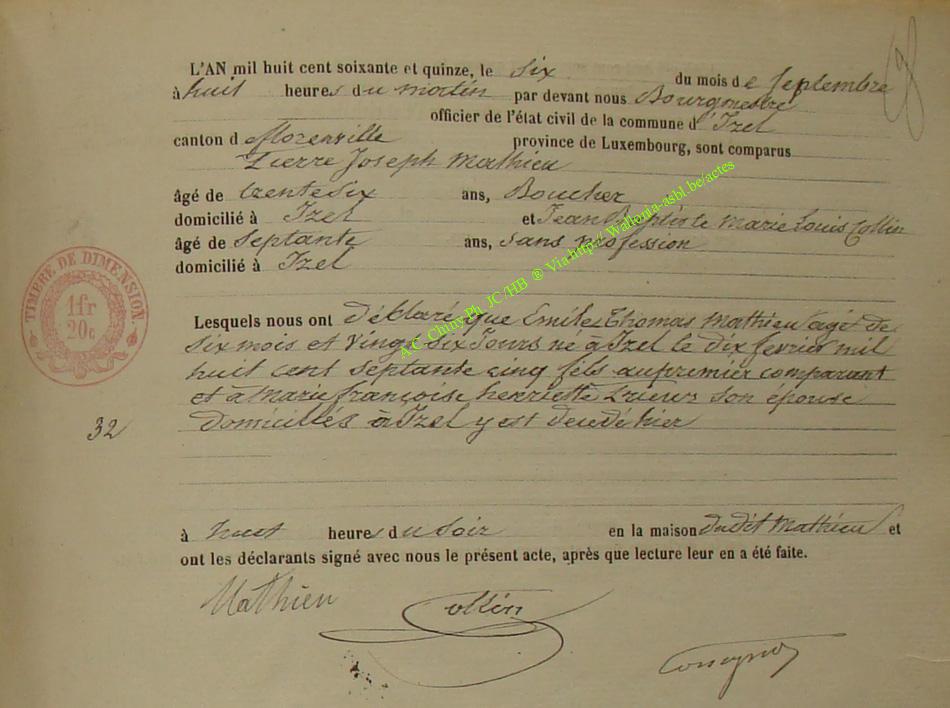 L'AN mil huit cent soixante et quinze, le six du mois de Septembre
à huit heures du matin par devant nous Bourgmestre
officier de l'état civil de la commune d'Izel
canton d Florenville province de Luxembourg, sont comparus
Pierre Joseph Mathieu
âgé de trente six ans, Boucher
domicilié à Izel et Jean Baptiste Marie Louis Collin
âgé de Septante ans, Sans profession
domicilié à Izel
TIMBRE DE DIMENSION
1fr
20c
Lesquels nous ont déclaré que Emile Thomas Mathieu agé de
Six mois et Vingt Six Jours né à Izel le dix fevrier mil
huit cent Septante cinq fils au premier comparant
et à Marie françoise henriette son épouse
Domiciliés à Izel y est décédé hier
32
à huit heures du Soir en la maison dudit Mathieu et
ont les déclarants signé avec nous le présent acte, après que lecture leur en a été faite.
Mathieu Collin
A.C. Chiny Ph. JC/HB ® Via http://Wallonia-asbl.be/actes